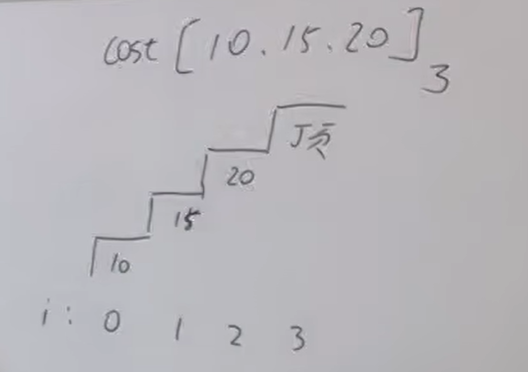 cost [10.15.20] 3
顶
20
15
10
i: 0 1 2 3